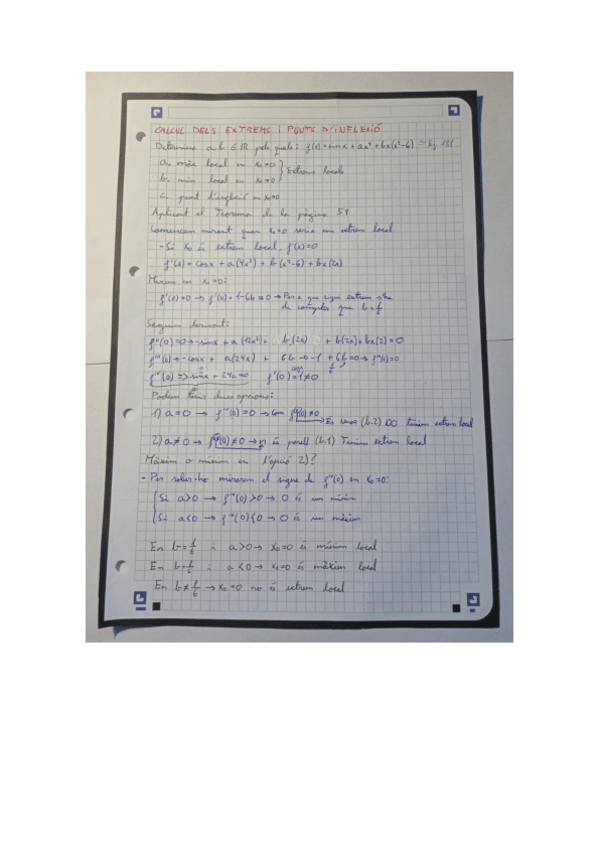 CALCUL DELS EXTREMS i PUNTS D'INFLEXIÓ
Determina a, b ∈ ℝ pels quals: f(x) = sinx + ax⁴ + bx(x²-6)
a. màx local en x₀=0 } Extrems locals
b. mín local en x₀=0
c. punt d'inflexió en x₀=0
Aplicant el Teorema de la pàgina 59
Comencem mirant quan x₀=0 seria un extrem local
- Si x₀ és extrem local, f'(x)=0
f'(x) = cosx + a(4x³) + b(x²-6) + bx(2x)
Mirem en x₀=0:
f'(0)=0 → f'(0) = 1-6b = 0 → Per a que sigui extrem s'ha
de complir que b = 1/6
Seguim derivant:
f''(0)=0 → -sinx + a(12x²) + b(2x) + b(2x) + bx(2) = 0
f'''(0) → -cosx + a(24x) + 6b → -1 + 6b = 0 → f'''(0)=0
f''''(0) => sinx + 24a = 0
Podem tenir dues opcions:
1) a=0 → f''''(0) = 0 → Com ≠0
→ És senar (b.2) NO tenim extrem local
2) a≠0 → f''''(0) ≠ 0 → n és parell (b.1) Tenim extrem local
Màxim o mínim en l'opció 2)?
- Per saber-ho mirarem el signe de f''''(0) en x₀=0:
Si a>0 → f''''(0) > 0 → 0 és un mínim
Si a<0 → f''''(0) < 0 → 0 és un màxim
En b=1/6 i a>0 → x₀=0 és mínim local
En b=1/6 i a<0 → x₀=0 és màxim local
En b≠1/6 → x₀=0 no és extrem local